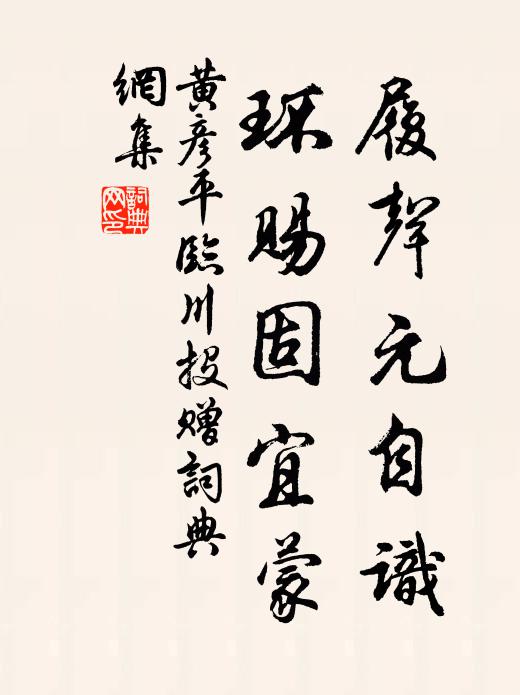 履聲元自識
环賜固宜蒙
黄彦平臨川投贈詞典
網集
詞典網印